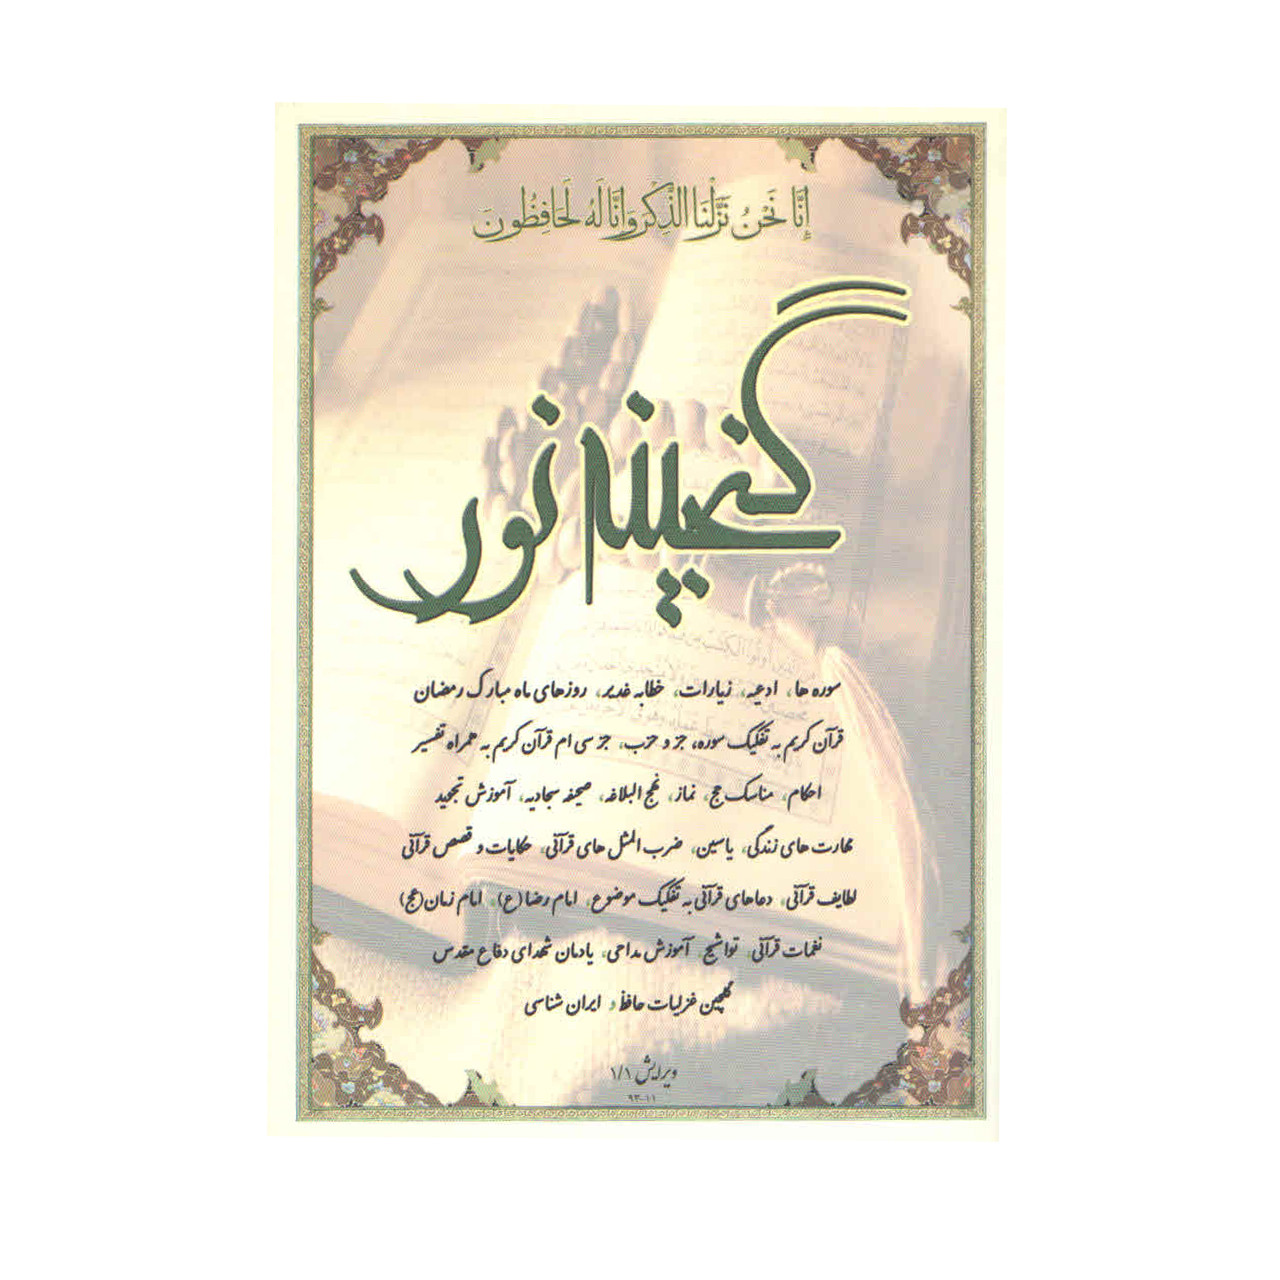 إِنَّا نَحْنُ نَزَّلْنَا الذِّكْرَ وَإِنَّا لَهُ لَحَافِظُونَ
گنجینه نور
سوره ها، ادعیه، زیارات، خطابه غدیر، روزهای ماه مبارک رمضان
قرآن کریم به تفکیک سوره، جز و حزب، جز سی ام قرآن کریم به همراه تفسیر
احکام، مناسک حج، نماز، نهج البلاغه، صحیفه سجادیه، آموزش تجوید
مهارت های زندگی، یاسین، ضرب المثل های قرآنی، حکایات و قصص قرآنی
لطایف قرآنی، دعاهای قرآنی به تفکیک موضوع، امام رضا (ع)، امام زمان (عج)
نغمات قرآنی، تواشیح، آموزش مداحی، یادمان شهدای دفاع مقدس
گلچین غزلیات حافظ و ایران شناسی
ویرایش ۱/۱
۹۳-۱۱